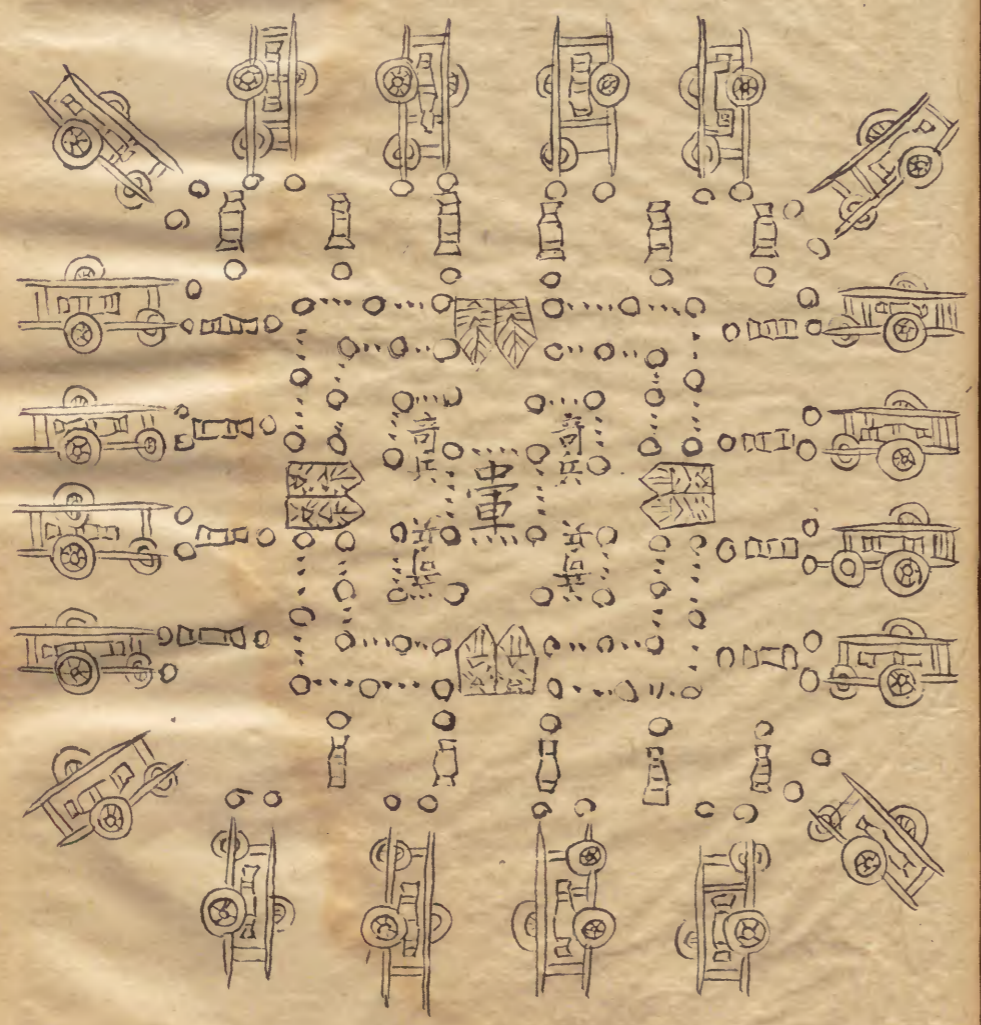 奇兵
奇兵
中軍
奇兵
奇兵